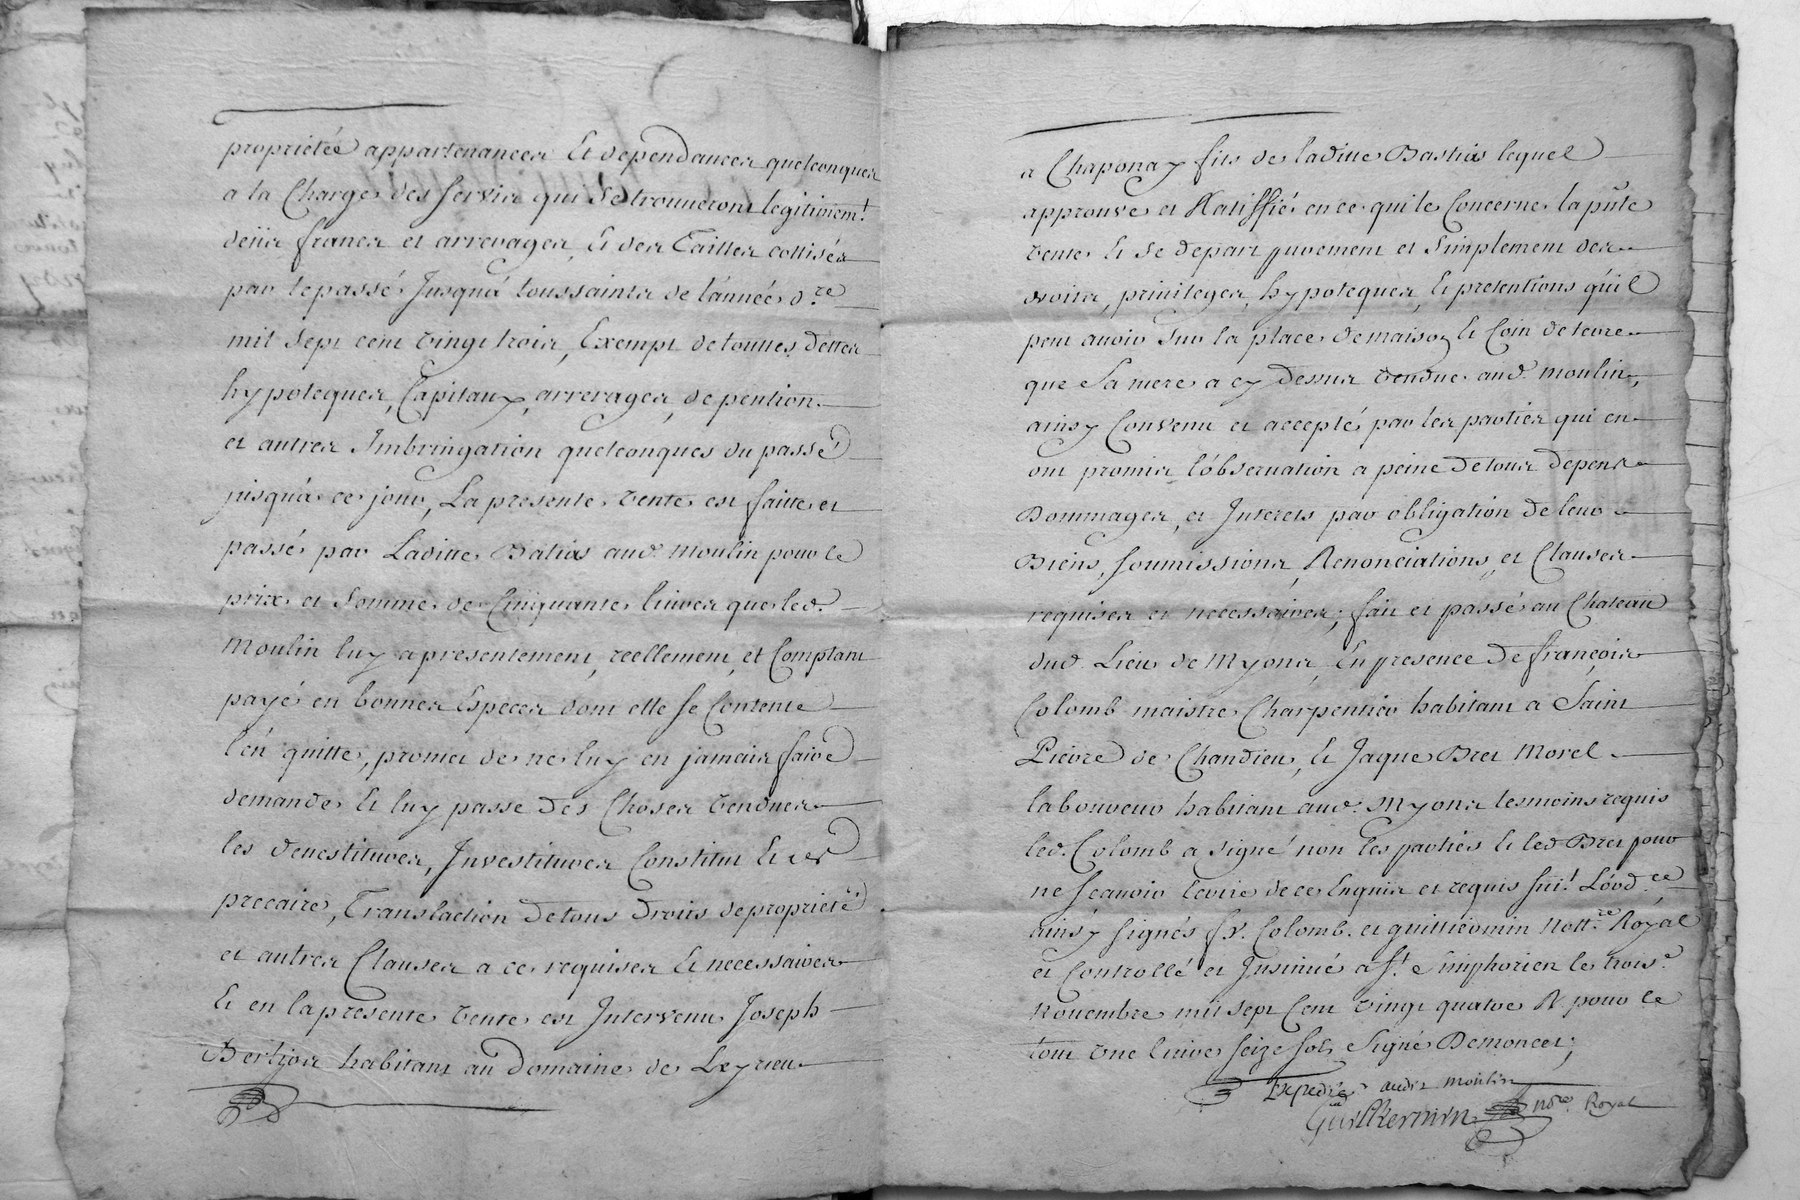 proprietée appartenances Et dependances quelconques
a la Charge des servis qui se trouueront legitimemt.
deüs francs et arrerages, Et des Tailles cottisés
par le passé Jusqu'a toussaints de l'année dre
mil sept cent vingt trois, Exempt de toutes dettes
hypoteques, Capitaux, arrerages, de pention
et autres Imbringation quelconques du passé
jusqu'a ce jour, La presente vente est faitte et
passé par Laditte Bastias aud. Moulin pour le
prix et somme de Cinquante liures que led.
Moulin luy a presentement, reellement, et Comptant
payé en bonnes Especes dont elle se Contente
l'en quitte, promet de ne luy en jamais faire
demande Et luy passe des Choses vendues
les deuestitures, Inuestitures Constitut Et
precaire, Translaction de tous Droits de proprieté
et autres Clauses a ce requises Et necessaires
Et en la presente vente est Interuenu Joseph
Berlioz habitant au Domaine de Leyrieu
a Chaponay fils de laditte Bastias lequel
approuve et Ratiffié en ce qui le Concerne la pnte
vente Et se depart purement et simplement des
droits, priuileges, hypoteques, Et pretentions qu'il
peut auoir sur la place de maison Et Coin de terre
que sa mere a cy dessus vendue aud. moulin,
ainsy Convenu et accepté par les parties qui en
ont promis l'obseruation a peine de tous depens
Dommages, et Interets par obligation de leur
Biens, soumissions, Renonciations, et Clauses
requises et necessaires; fait et passé au Chateau
dud. Lieu de Myons, En presence de françois
Colomb maistre Charpentier habitant a Saint
Pierre de Chandieu, Et Jaque Bret Morel
laboureur habitant aud. Myons tesmoins requis
led. Colomb a signé non les parties Et led Bret pour
ne scauoir écrire de ce Enquis et requis suit. L'ord.ce
ainsy signés fr. Colomb. et guillermin Nott.re Royal
et Controllé et Insinué a St. Simphorien le trois.
Nouembre mil sept Cent vingt quatre R. pour le
tout vne liure seize sols Signé Demoncet;
Expedié audit Moulin
Guillermin nore. Royal